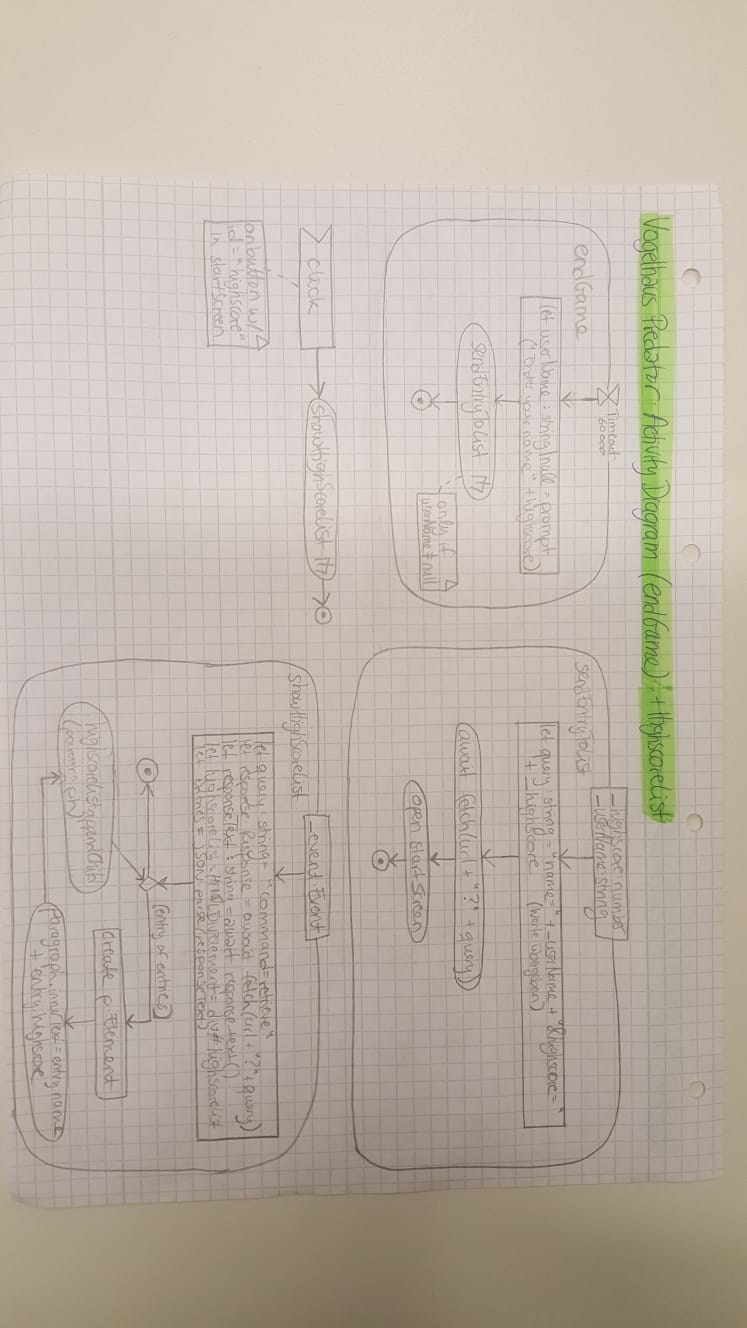 Vogelhaus Predator: Activity Diagram (endGame) + Highscorelist
endGame
Timeout
60000
let userName: string|null = prompt
("Enter your name" + highscore)
sendEntryToList
only if
userName ≠ null
sendEntryToList
_highscore: number
_userName: string
let query: string = "name=" + _userName + "&highscore="
+ _highScore
await fetch(url + "?" + query)
open startscreen
click
on button w/
id = "highscore"
in startscreen
showHighScorelist
showHighScorelist
_event: Event
let query: string = "command=retrieve"
let response: Response = await fetch(url + "?" + query)
let responseText: string = await response.text()
let highScorelist: HTMLDivElement = div#highscorelist
let entries = JSON.parse(responseText)
[entry of entries]
Create p-Element
Paragraph.innerText = entry.name
+ entry.highscore
highscorelist.appendChild
(paragraph)